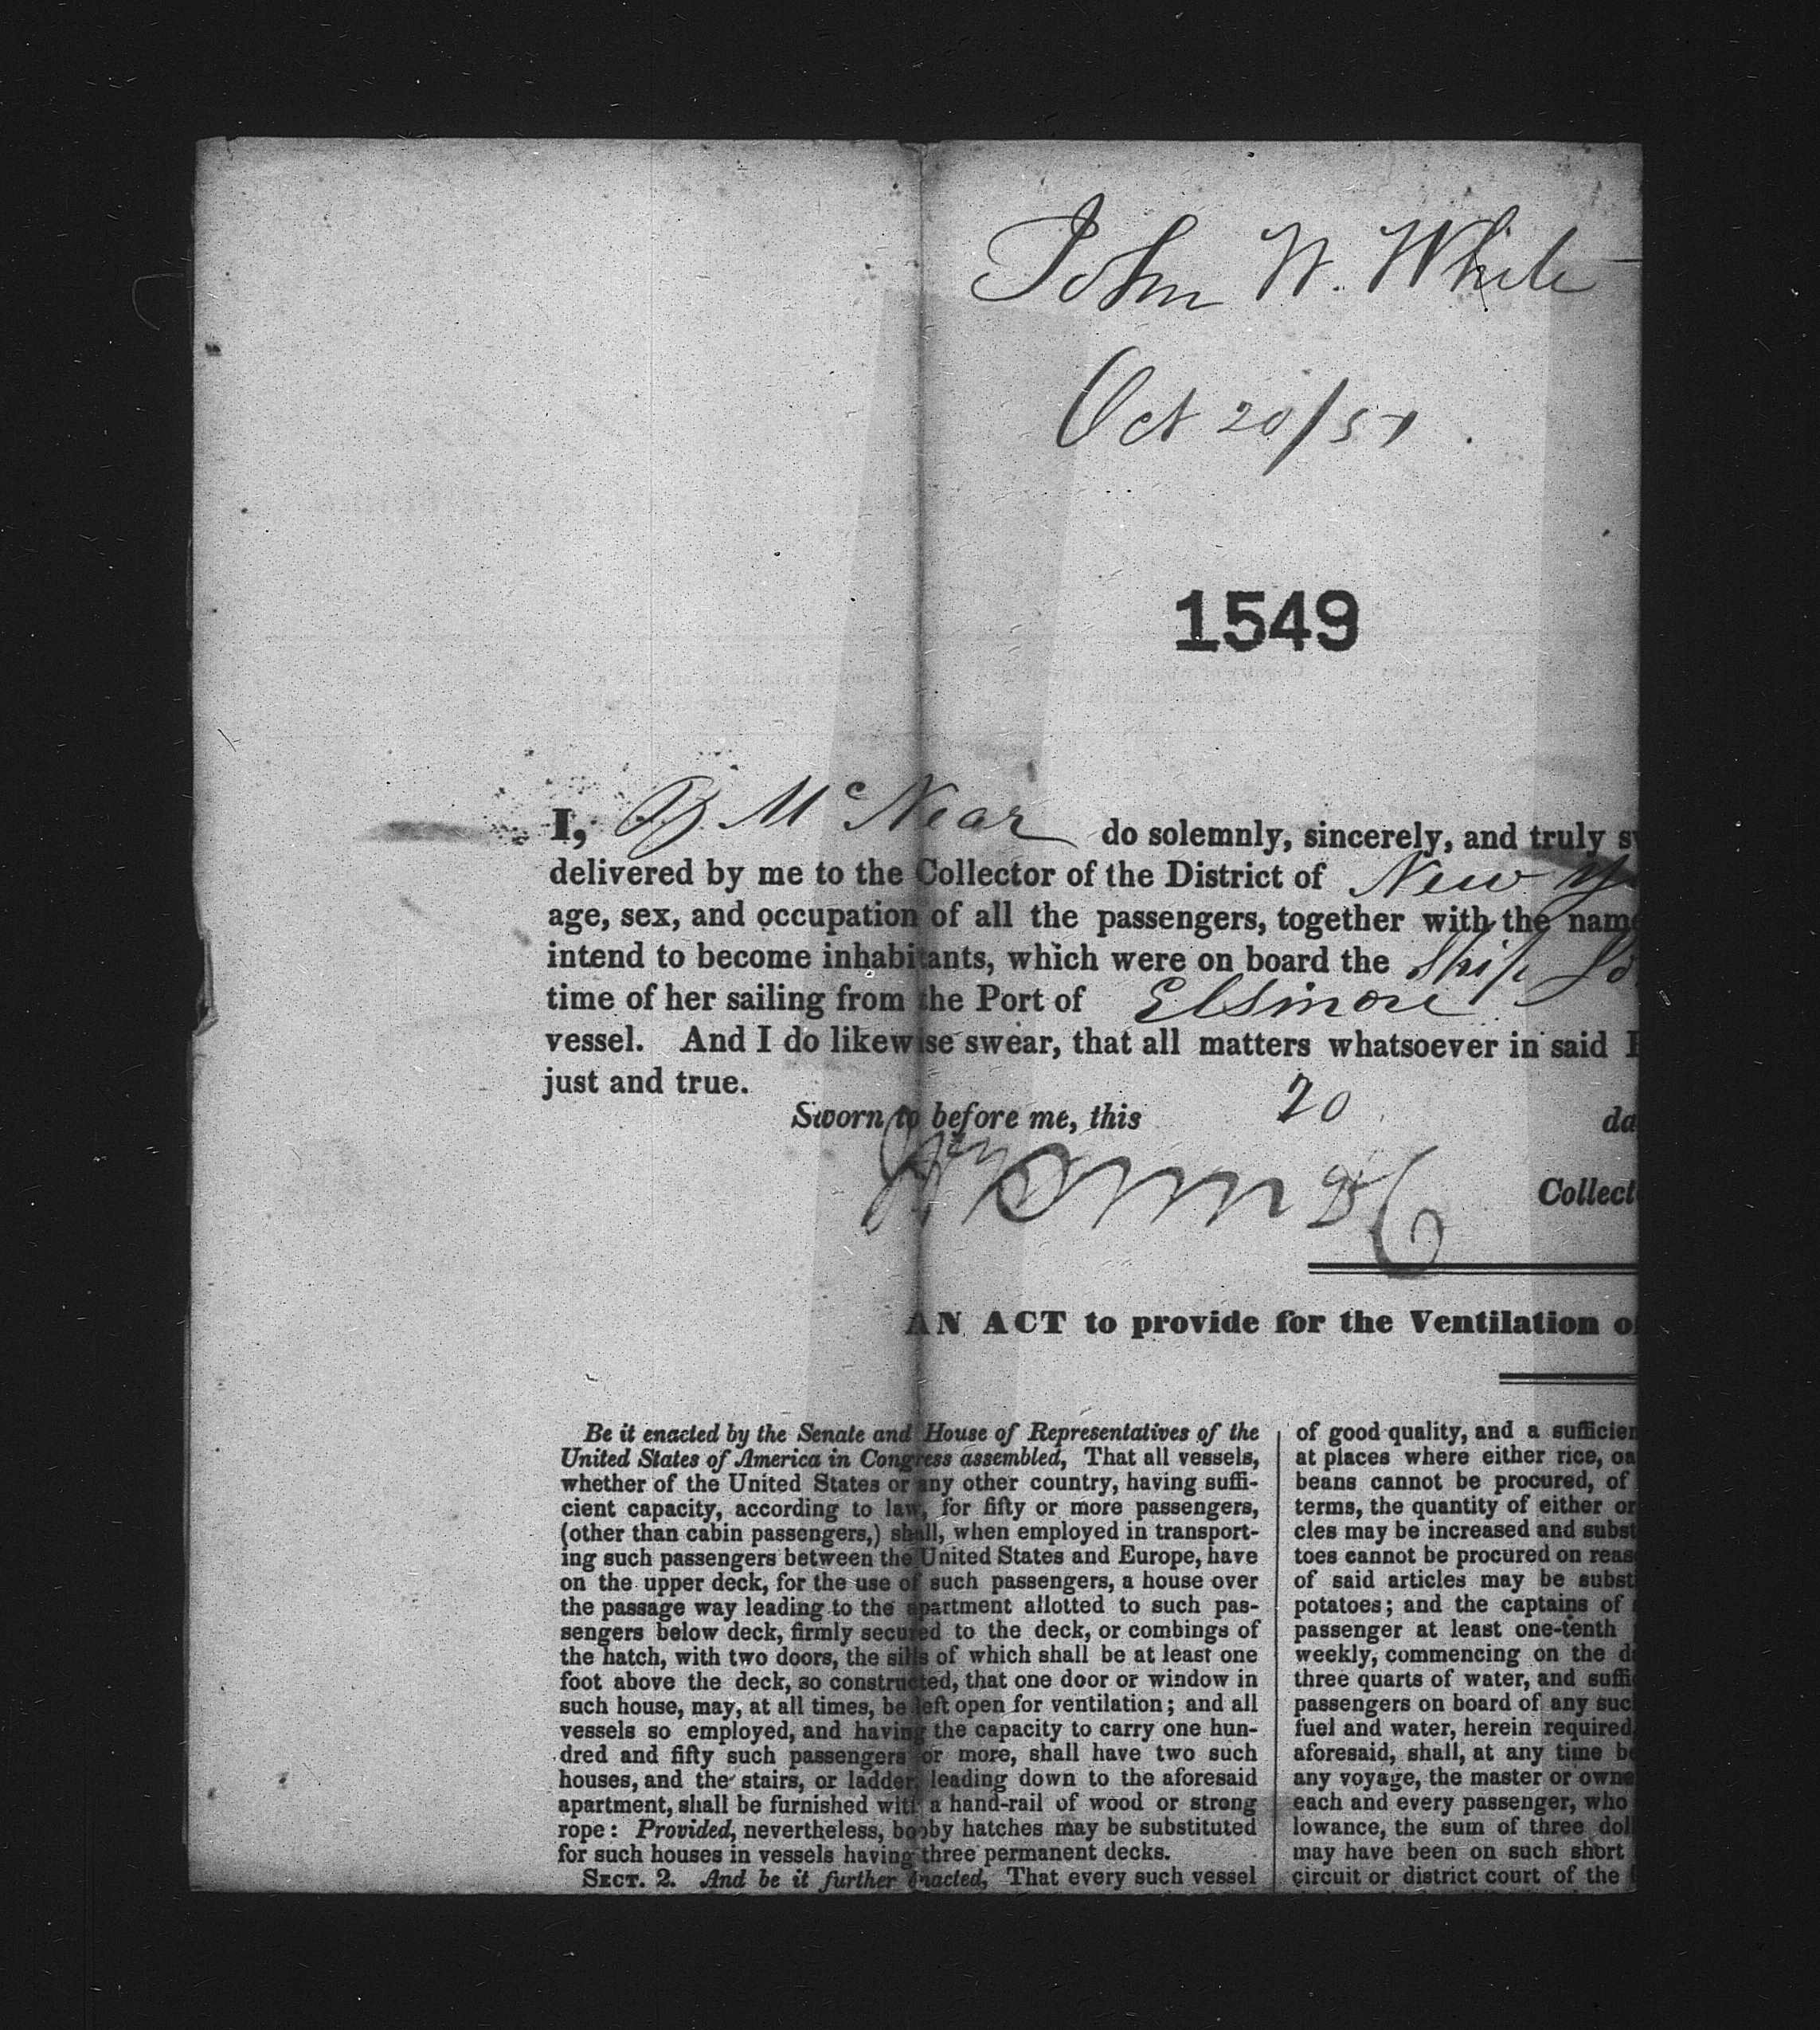 John W. White
Oct 20/51
1549
I, B McNear do solemnly, sincerely, and truly
delivered by me to the Collector of the District of New
age, sex, and occupation of all the passengers, together with the
intend to become inhabitants, which were on board the Ship
time of her sailing from the Port of Elsinore
vessel. And I do likewise swear, that all matters whatsoever in said
just and true.
Sworn to before me, this 20
AN ACT to provide for the Ventilation
Be it enacted by the Senate and House of Representatives of the
United States of America in Congress assembled, That all vessels,
whether of the United States or any other country, having suffi-
cient capacity, according to law, for fifty or more passengers,
(other than cabin passengers,) shall, when employed in transport-
ing such passengers between the United States and Europe, have
on the upper deck, for the use of such passengers, a house over
the passage way leading to the apartment allotted to such pas-
sengers below deck, firmly secured to the deck, or combings of
the hatch, with two doors, the sills of which shall be at least one
foot above the deck, so constructed, that one door or window in
such house, may, at all times, be left open for ventilation; and all
vessels so employed, and having the capacity to carry one hun-
dred and fifty such passengers or more, shall have two such
houses, and the stairs, or ladder, leading down to the aforesaid
apartment, shall be furnished with a hand-rail of wood or strong
rope: Provided, nevertheless, booby hatches may be substituted
for such houses in vessels having three permanent decks.
SECT. 2. And be it further enacted, That every such vessel
of good quality, and a
at places where either rice,
beans cannot be procured, of
terms, the quantity of either or
cles may be increased and
toes cannot be procured on
of said articles may be
potatoes; and the captains of
passenger at least one-tenth
weekly, commencing on the
three quarts of water, and
passengers on board of any
fuel and water, herein required,
aforesaid, shall, at any time
any voyage, the master or
each and every passenger, who
lowance, the sum of three
may have been on such short
circuit or district court of the